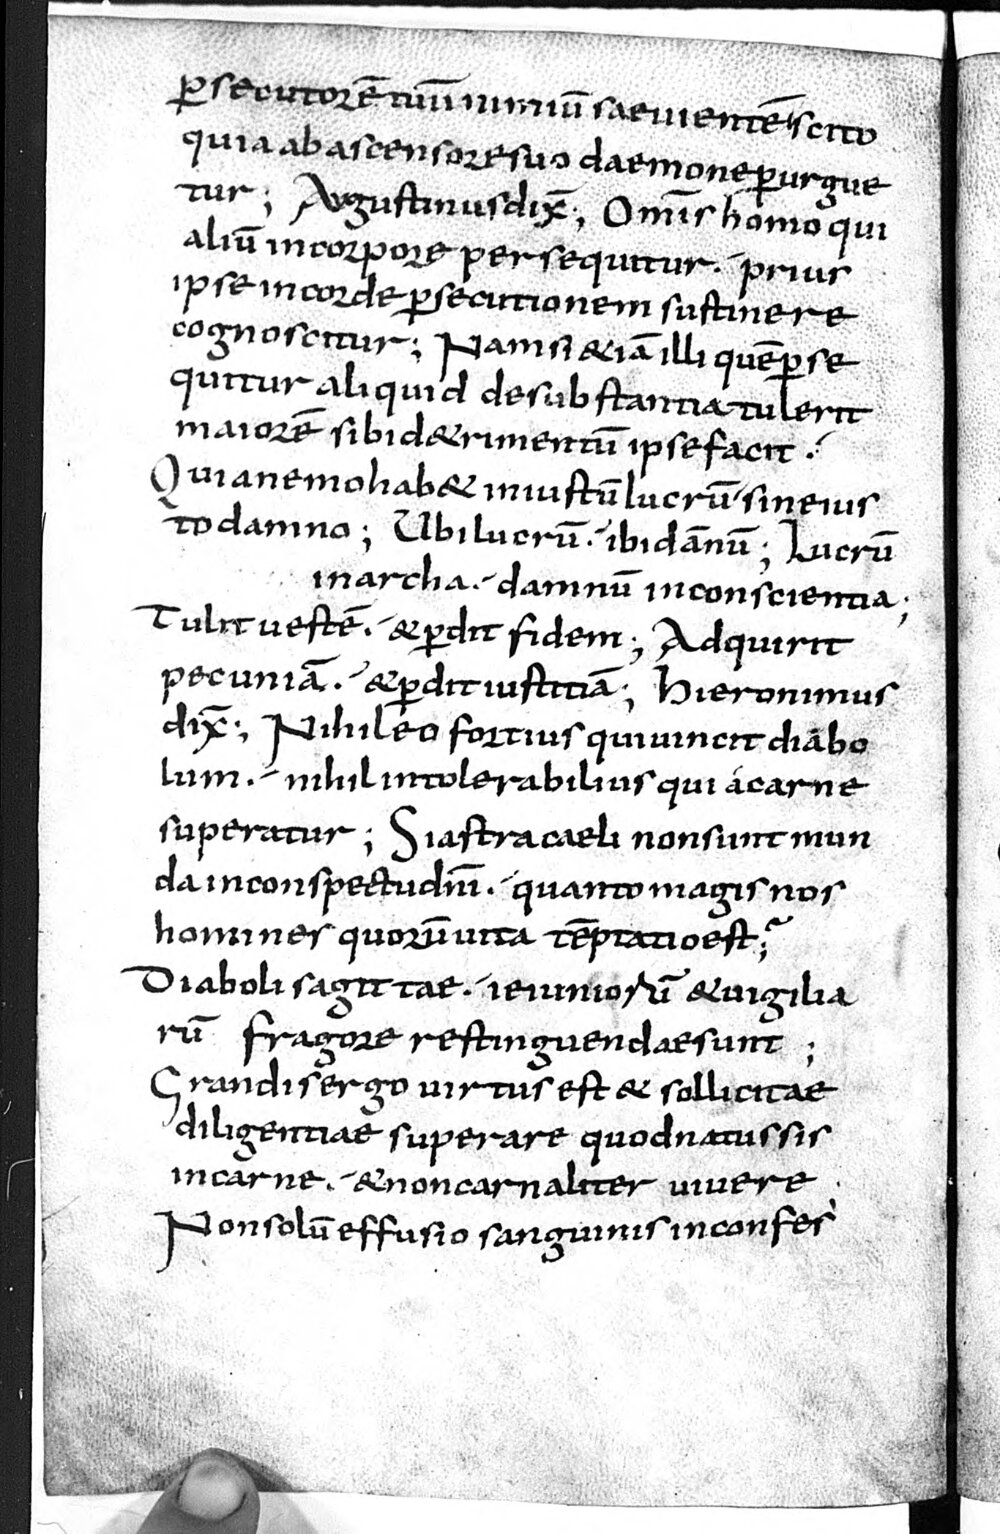 p̄secutorē tuū nimiū saeuientē scito
quia ab ascensore suo daemone p̄urgue
tur; Augustinus dix̄; Om̄is homo qui
aliū in corpore persequitur. prius
ipse in corde p̄secutionem sustinere
cognoscitur; Nam si &iā illi quē p̄se
quitur aliquid de substantia tulerit
maiorē sibi d&rimentū ipse facit.
Quia nemo hab& iniustū lucrū sine ius
to damno; Ubi lucrū. ibi dānū; Lucrū
in archa. damnū in conscientia;
Tulit uestē. & p̄dit fidem; Adquirit
pecuniā. & p̄dit iustitiā; Hieronimus
dix̄; Nihil eo fortius qui uincit diabo
lum. nihil intolerabilius qui a carne
superatur; Si astra caeli non sunt mun
da in conspectu dn̄i. quanto magis nos
homines quorū uita tēptatio est;
Diaboli sagittae. ieiuniorū & uigilia
rū fragore restinguendae sunt;
Grandis ergo uirtus est & sollicitae
diligentiae superare quod natus sis
in carne. & non carnaliter uiuere;
Non solū effusio sanguinis in confes